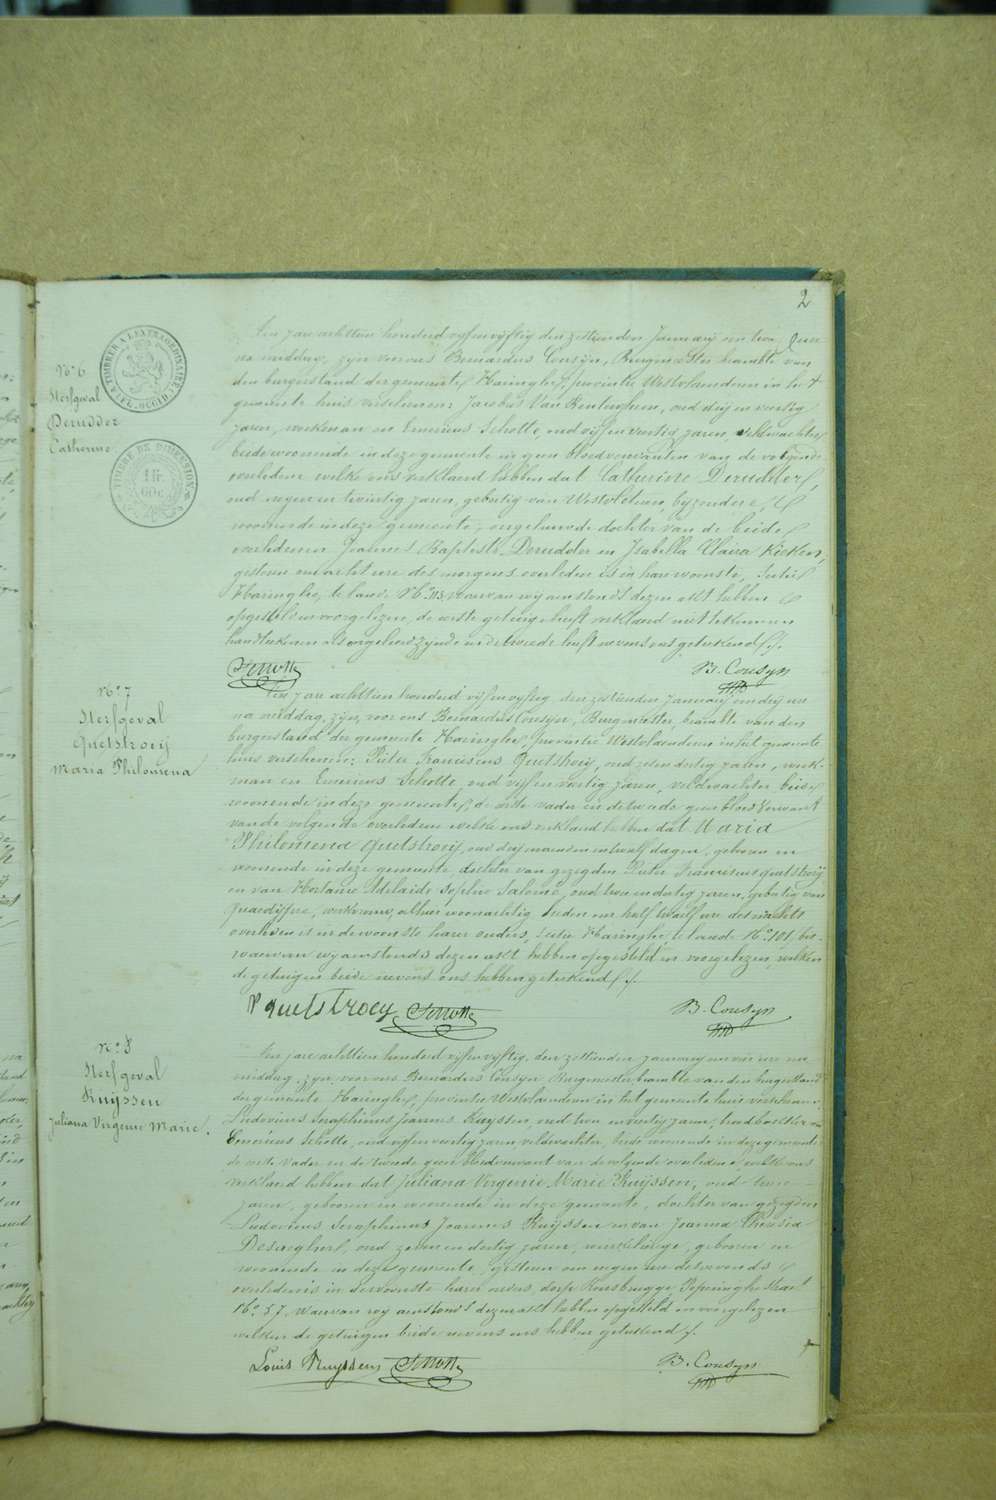 2
TIMBRE A L'EXTRAORDINAIRE
TIMBRE DE DIMENSION
1 fr.
60 c.
N° 6
Sterfgeval
Derudder
Catherine
Een jare achttien honderd vijf en vijftig den zestienden January om twee uren
na middag, zyn voor ons Bernardus Cousyn, Burgmeester beambte van
den burgerstand der gemeente Haringhe, provintie Westvlaenderen in het
gemeente huis verschenen Jacobus Van oud dry en veertig
jaren, werkman en Emericus Schotte, oud vyf en veertig jaren, veldwachter,
beide woonende in deze gemeente en geen bloedverwanten van de volgende
overledene welke ons verklaerd hebben dat Catherine Derudder,
oud negen en twintig jaren, geboortig van Westvleteren, byzondere,
woonende in deze gemeente, ongehuwde dochter van de beide
overledenen Joannes Baptiste Derudder en Isabella Clara Kieken,
gisteren om acht ure des morgens overleden is in haer woonste, sectie
Haringhe, te lande N° 113, waervan wy aenstonds dezen akt hebben
opgesteld en voorgelezen, de eerste getuige heeft verklaerd niet te kunnen
handteekenen als ongeleerd zynde en de tweede heeft nevens ons geteekend
Schotte
B. Cousyn
N° 7
Sterfgeval
Quetstroey
Maria Philomena
Een jare achttien honderd vyf en vyftig den zestienden January om dry ure
na middag, zyn, voor ons Bernardus Cousyn, Burgmeester, beambte van den
burgerstand der gemeente Haringhe, provintie Westvlaenderen in het gemeente
huis verschenen: Pieter Franciscus Quetstroey, oud zes en dertig jaren, werk-
man en Emericus Schotte, oud vyf en veertig jaren, veldwachter, beide
woonende in deze gemeente, de eerste vader en de tweede geen bloedverwant
van de volgende overledene welke ons verklaerd hebben dat Maria
Philomena Quetstroey, oud dry maenden en twaelf dagen, geboren en
woonende in deze gemeente dochter van gezegden Pieter Franciscus Quetstroey
en van Hortance Adelaide Sophie Salomé, oud twee en dertig jaren, geboortig van
werkvrouw, alhier woonachtig, heden om half twaelf ure des nachts
overleden is in de woonste harer ouders, sectie Haringhe, te lande N° 101,
waervan wy aenstonds dezen akt hebben opgesteld en voorgelezen, welken
de getuigen beide nevens ons hebben geteekend
P quetstroey
Schotte
B. Cousyn
N° 8
Sterfgeval
Kuyssen
Juliana Virgenie Marie.
Een jare achttien honderd vyf en vyftig, den zestienden January om vier ure na
middag, zyn, voor ons Bernardus Cousyn Burgmeester beambte van den burgerstand
der gemeente Haringhe, provintie Westvlaenderen in het gemeente huis verschenen:
Ludovicus Seraphinus Joannes Kuyssen, oud twee en veertig jaren, en
Emericus Schotte, oud vyf en veertig jaren, veldwachter, beide woonende in deze gemeente
de eerste vader en de tweede geen bloedverwant van de volgende overledene, welke ons
verklaerd hebben dat Juliana Virgenie Marie Kuyssen, oud twee
jaren, geboren en woonende in deze gemeente, dochter van gezegden
Ludovicus Seraphinus Joannes Kuyssen en van Joanna Theresia
oud zeven en dertig jaren, winkelierge, geboren en
woonende in deze gemeente, gisteren om negen ure des avonds
overleden is in de woonste harer ouders, dorp Rousbrugge, Poperinghe Straet
N° 57, waervan wy aenstonds dezen akt hebben opgesteld en voorgelezen
welken de getuigen beide nevens ons hebben geteekend
Louis Kuyssen
Schotte
B. Cousyn